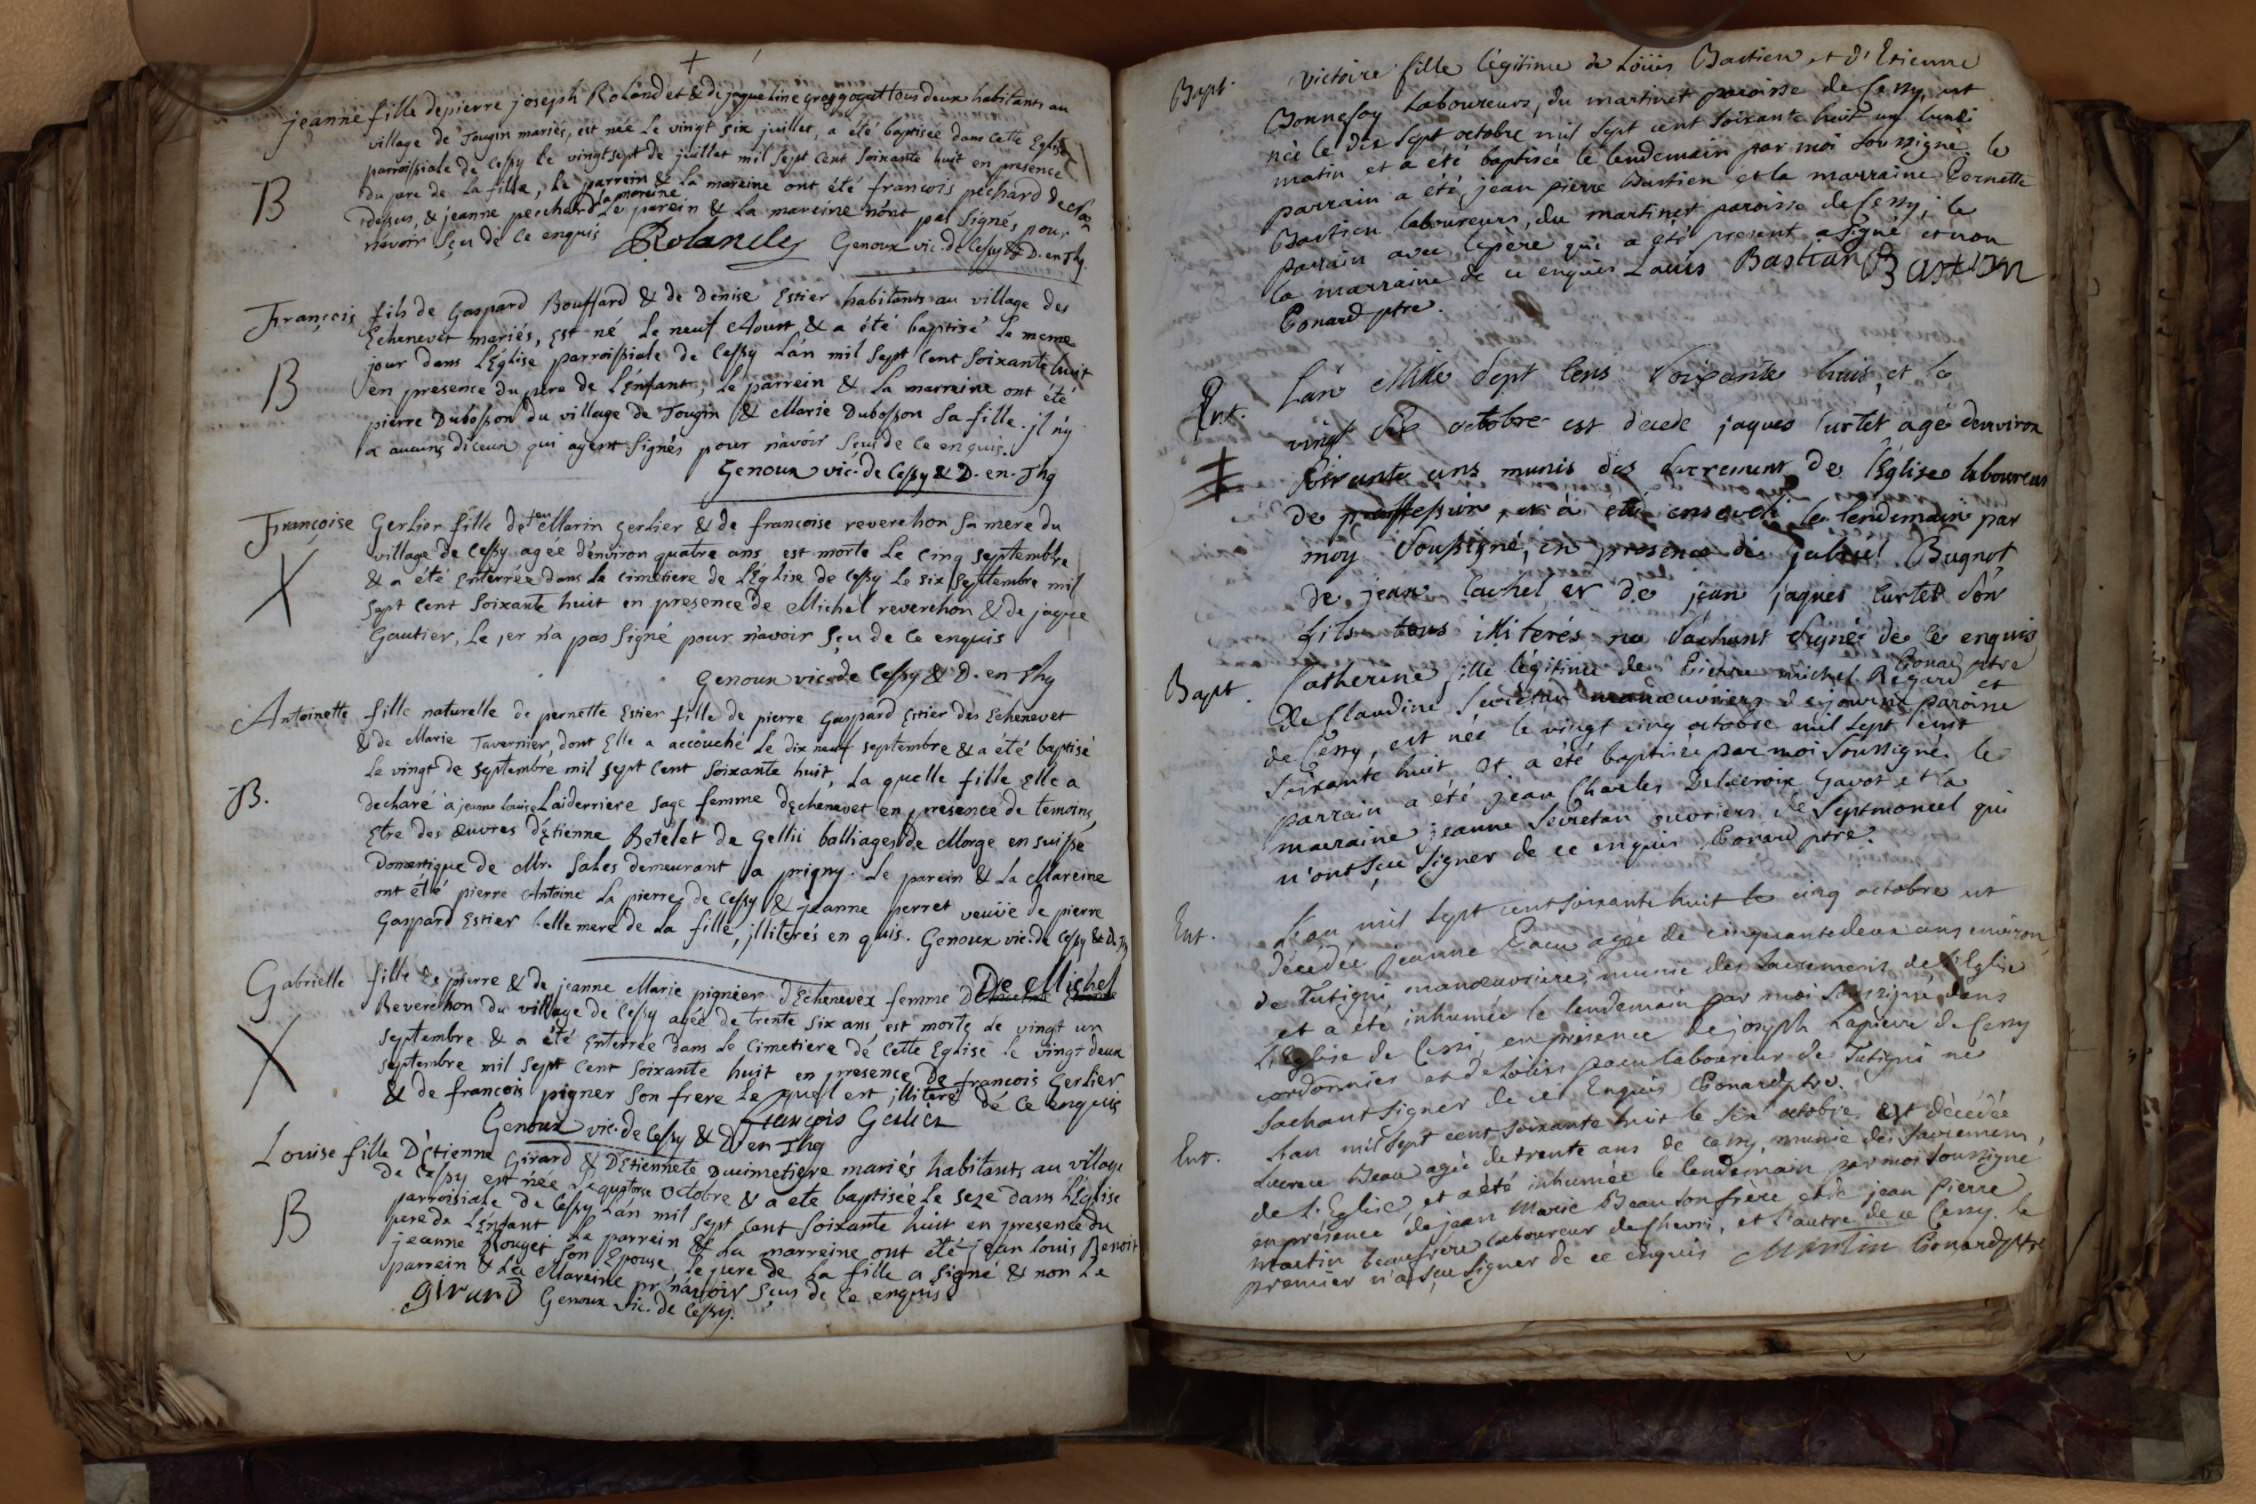 jeanne fille de pierre joseph Rolandet & de jaqueline grosgogat tous deux habitants au
village de Tougin mariés, est née le vingt six juillet, a été baptisée dans cette Eglise
parroissiale de Cessy le vingt sept de juillet mil sept cent soixante huit en presence
B
du pere de la fille, le parrein & la mareine ont été francois pechard de
dessus, & jeanne pechard la mareine le parein & la mareine n'ont pas signés pour
n'avoir sçu de ce enquis Rolandy Genoux vic. de Cessy & D. en Thg.
François fils de Gaspard Bouffard & de Denise Estier habitants au village des
Echenevet mariés, est né le neuf Aoust & a été baptisé le meme
jour dans l'Église parroissiale de Cessy l'an mil sept cent soixante huit
B
en presence du pere de l'énfant, le parrein & la marreine ont été
pierre Dubosson du village de Tougin & Marie Dubosson sa fille. jl n'y
a aucuns d'iceux qui ayent signés pour n'avoir sçu de ce enquis.
Genoux vic. de Cessy & D. en Thg
Françoise Gerlier fille de feu Marin Gerlier & de francoise reverchon sa mere du
village de Cessy agée d'environ quatre ans est morte le cinq septembre
X
& a été enterrée dans le cimetiere de l'Église de Cessy le six septembre mil
sept cent soixante huit en presence de Michel reverchon & de jaque
Gautier, le 1er n'a pas signé pour n'avoir sçu de ce enquis
Genoux vic. de Cessy & D. en Thg
Antoinette fille naturelle de pernette Estier fille de pierre Gaspard Estier des Echenevet
& de Marie Tavernier, dont elle a accouché le dix neuf septembre & a été baptisé
le vingt de septembre mil sept cent soixante huit, la quelle fille elle a
B.
declaré à jeanne louise Laiderriere sage femme d'Echenevet en presence de temoins,
Etre des œuvres d'Etienne Betelet de Gellii balliages de Morge en suisse
Domestique de Mr. Sales demeurant a prigny. Le parein & la Mareine
ont été pierre Antoine La pierre de Cessy & jeanne perret veuve de pierre
Gaspard Estier belle mere de la fille, jlliterés en quis. Genoux vic. de Cessy & D. Th
Gabrielle fille de pierre & de jeanne Marie pignier d'Echenevex femme De Michel
Reverchon du village de Cessy agée de trente six ans est morte le vingt un
septembre & a été enterrée dans le cimetiere de cette Eglise le vingt deux
X
septembre mil sept cent soixante huit en presence de francois Gerlier
& de francois pigner son frere le quel est jlliteré de ce enquis
Genoux vic. de Cessy & D. en Thg François Gerlier
Louise fille d'Étienne Girard & d'Etiennete Ducimetiere mariés habitants au village
de Cessy est née le quatorse octobre & a été baptisée le seze dans l'Église
parroisiale de Cessy l'an mil sept cent soixante huit en presence du
B
pere de l'énfant le parrein & la marreine ont été jean louis Benoit
jeanne Rouget son Epouse, le pere de la fille a signé & non le
parrein & la Mareine pr. n'avoir sçus de ce enquis
girard Genoux vic. de Cessy.
Bapt. Victoire fille légitime de Loüis Bastien et d'Etienne
Bonnefoy laboureurs, du martinet paroisse de Cessy, est
née le dix sept octobre mil sept cent soixante huit un lundi
matin et a été baptisée le lendemain par moi soussigné, le
parrain a été jean pierre Bastien et la marraine Pernette
Bastien laboureurs, du martinet paroisse de Cessy; le
parrain avec le père qui a été present a signé et non
la marraine de ce enquis Louis Bastian Bastian
Conard ptre.
Ent. L'an Mille Sept Cens Soixante huit, et le
vingt octobre est décédé jaques Curtet agé d'environ
soixante ans munis des sacrements de l'Église laboureur
de proffession, et à été enseveli le lendemain par
moy Soussigné, en presence de gabriel Bugnot,
de jean Cachel et de jean jaques Curtet son
fils tous illiterés ne sachant signés de ce enquis
Conard ptre
Bapt. Catherine fille légitime de Pierre michel Regard et
de Claudine Secretan manœuvriers séjournt paroisse
de Cessy, est née le vingt cinq octobre mil sept cent
soixante huit et a été baptisée par moi soussigné le
parrain a été jean Charles Delacroix Gavot et la
marraine jeanne Secretan ouvriers de Septmoncel qui
n'ont sçu signer de ce enquis Conard ptre.
Ent. L'an mil sept cent soixante huit le cinq octobre est
décédée jeanne Pacu agée de cinquante deux ans environ
de Tutigni manœuvriere, munie des sacrements de l'Eglise
et a été inhumée le lendemain par moi soussigné, dans
l'Eglise de Cessi, en présence de joseph Lapierre de Cessy
cordonnier et de Loüis pacu laboureur de Tutigni ne
sachant signer de ce Enquis Conard ptre.
Ent. L'an mil sept cent soixante huit le six octobre est décédée
Lucrece Beau agée de trente ans de Cessy, munie des sacremens,
de l'Eglise, et a été inhumée le lendemain par moi soussigné
en présence de jean Marie Beau son frère et de jean Pierre
Martin beaufrère laboureur de Chevri, et l'autre de ce Cessy. le
premier n'a sçu signer de ce enquis Martin Conard ptre